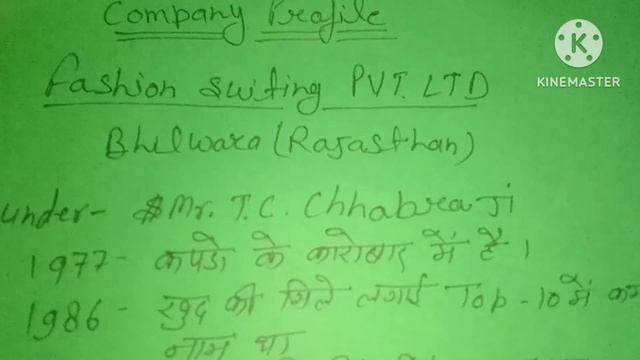 Company Profile
KINEMASTER
Fashion Suiting PVT. LTD
Bhilwara (Rajasthan)
under- Mr. T.C. Chhabra Ji
1977- कपडो के कारोबार में है ।
1986- खुद की मिले लगाई Top-10 में
नाम था